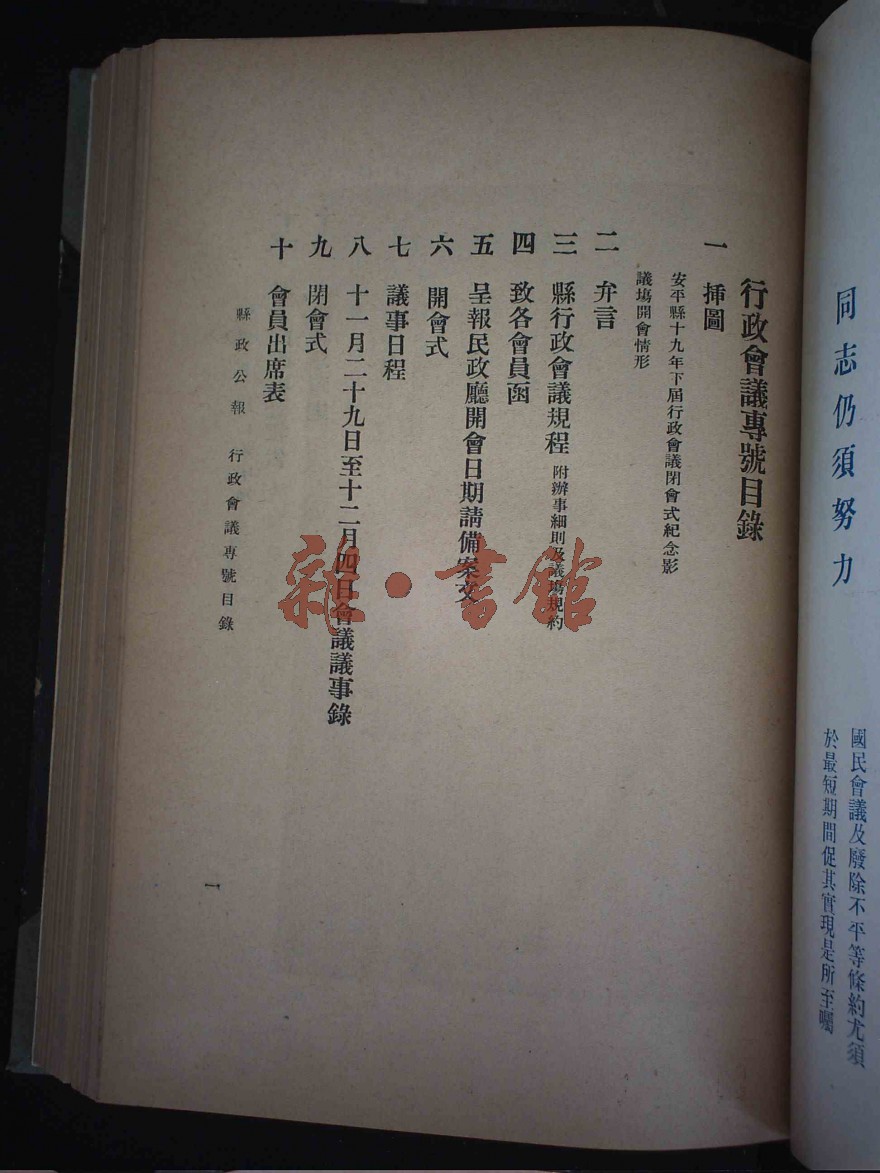 同志仍須努力
國民會議及廢除不平等條約尤須
於最短期間促其實現是所至囑
行政會議專號目錄
一 挿圖
安平縣十九年下届行政會議閉會式紀念影
議塲開會情形
二 弁言
三 縣行政會議規程 附辦事細則及議塲規約
四 致各會員函
五 呈報民政廳開會日期請備案文
六 開會式
七 議事日程
八 十一月二十九日至十二月四日會議議事錄
九 閉會式
十 會員出席表
縣政公報 行政會議專號目錄
一
雜·書館